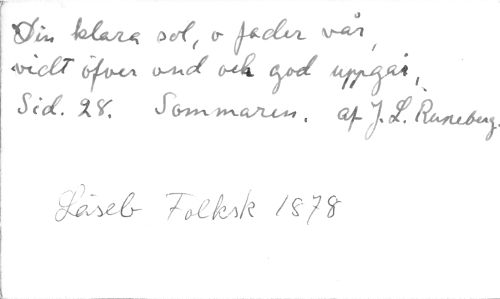 Din klara sol, o fader vår,
vidt öfver ond och god uppgår,
Sid. 28. Sommaren. af J. L. Runeberg.
Läseb Folksk 1878